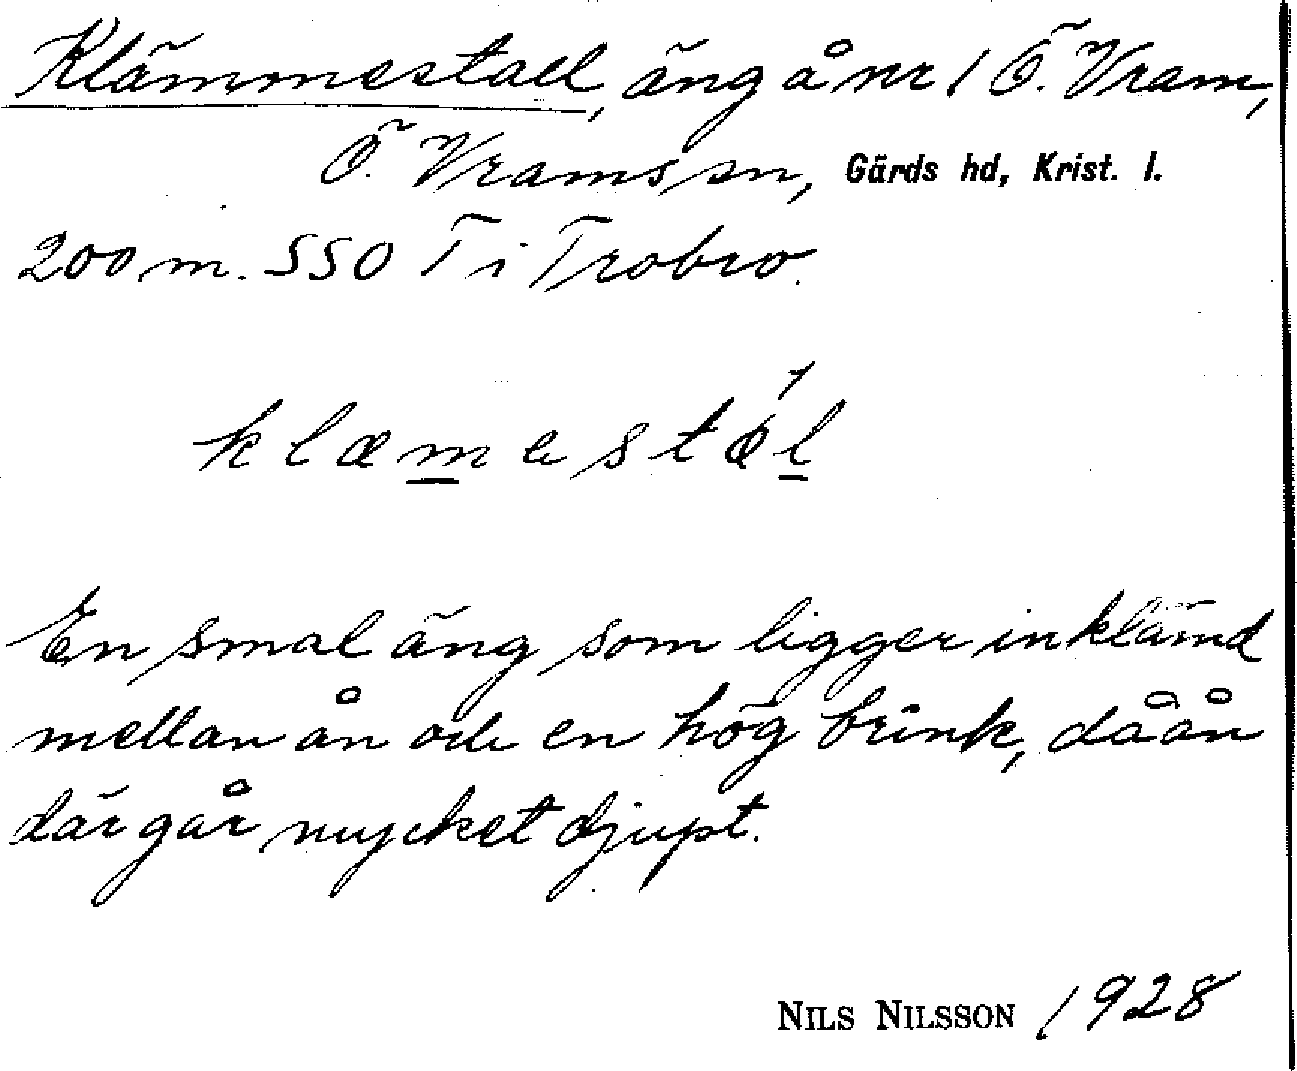 Klämmestael, äng å nr 1 Ö. Vram,
Ö. Vrams sn, Gärds hd, Krist. l.
200 m. SSO T i Trobro.
En smal äng som ligger inklämd
mellan ån och en hög brink, då ån
där går mycket djupt.
NILS NILSSON 1928